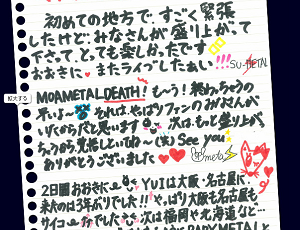 初めての地方で、すごく緊張
したけど、みなさんが盛り上がって
下さって、とっても楽しかったです
おおきに またライブしたぁい!!! SU-METAL
拡大する
MOAMETAL DEATH! も〜! 終わっちゃうの
それは、やっぱりファンのみなさんが
いたからだと思います 次は、もっと盛り上が
っちゃうから覚悟しといてね〜(笑) See you
ありがとうございました
2日間おおきに YUIは大阪・名古屋に
来たのは3年ぶりでした!! やっぱり大阪も名古屋も
サイコーでした 次は福岡や北海道など…
BABYMETALと